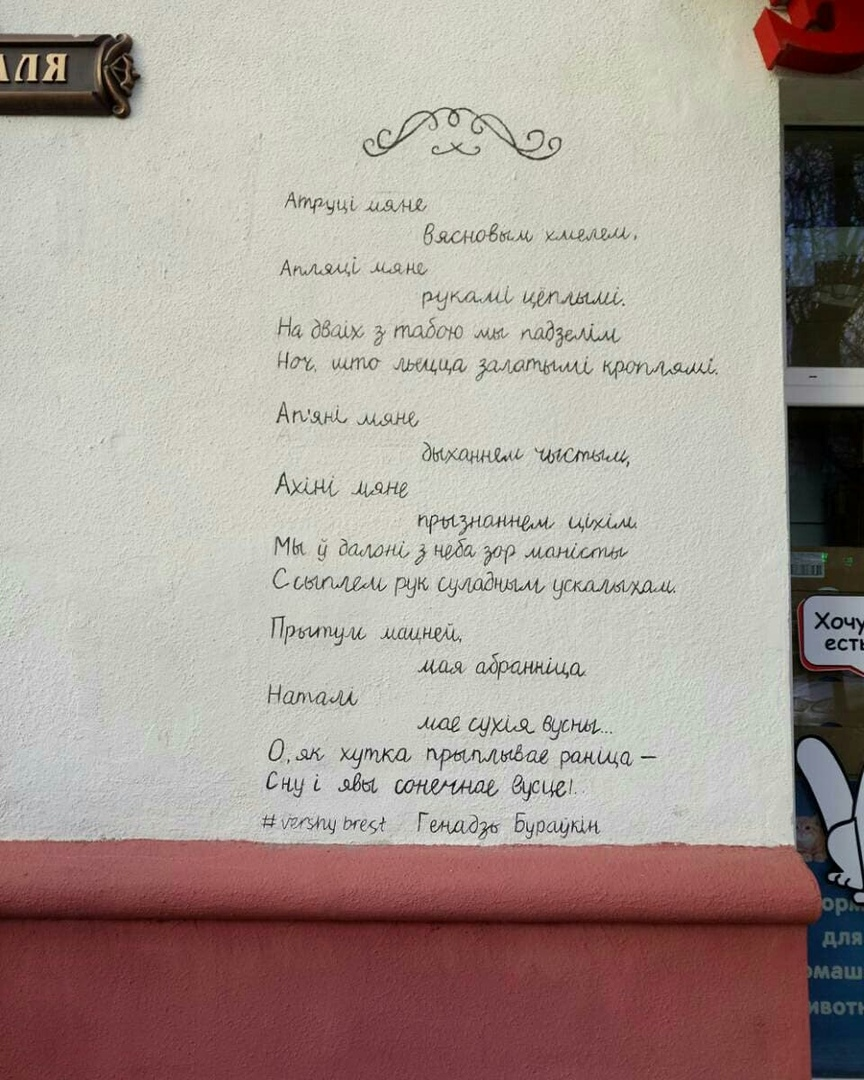 ЛЛЯ
Атруці мяне
вясновым хмелем,
Апляці мяне
рукамі цёплымі.
На дваіх з табою мы падзелім
Ноч, што льецца залатымі кроплямі.
Ап'яні мяне
дыханнем чыстым,
Ахіні мяне
прызнаннем ціхім
Мы ў далоні з неба зор маністы
Ссыплем рук суладным ускалыхам.
Прытулі мацней,
мая абранніца
Наталі
мае сухія вусны...
О, як хутка прыплывае раніца –
Сну і явы сонечнае вусце!..
#vershybrest Генадзь Бураўкін
Хочу
есть
для